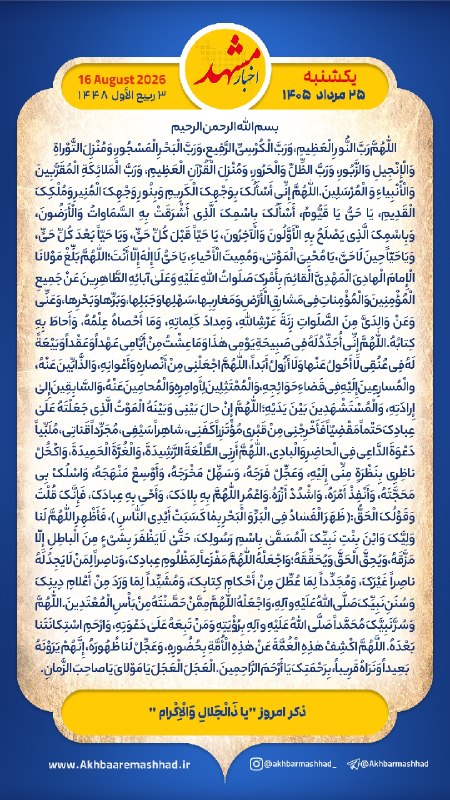 اخبار مشهد
یکشنبه
۲۵ مرداد ۱۴۰۵
16 August 2026
۳ ربیع الأول ۱۴۴۸
بسم الله الرحمن الرحیم
اَللّٰهُمَّ رَبَّ النُّورِ الْعَظِیمِ، وَرَبَّ الْکُرْسِیِّ الرَّفِیعِ، وَرَبَّ الْبَحْرِ الْمَسْجُورِ، وَمُنْزِلَ التَّوْرَاةِ
وَالْإِنْجِیلِ وَالزَّبُورِ، وَرَبَّ الظِّلِّ وَالْحَرُورِ، وَمُنْزِلَ الْقُرْآنِ الْعَظِیمِ، وَرَبَّ الْمَلائِکَةِ الْمُقَرَّبِینَ
وَالْأَنْبِیاءِ وَالْمُرْسَلِینَ. اللّٰهُمَّ إِنِّی أَسْأَلُکَ بِوَجْهِکَ الْکَرِیمِ وَبِنُورِ وَجْهِکَ الْمُنِیرِ وَمُلْکِکَ
الْقَدِیمِ، یَا حَیُّ یَا قَیُّومُ، أَسْأَلُکَ بِاسْمِکَ الَّذِی أَشْرَقَتْ بِهِ السَّمَاوَاتُ وَالْأَرَضُونَ،
وَبِاسْمِکَ الَّذِی یَصْلَحُ بِهِ الْأَوَّلُونَ وَالْآخِرُونَ، یَا حَیّاً قَبْلَ کُلِّ حَیٍّ، وَیَا حَیّاً بَعْدَ کُلِّ حَیٍّ،
وَیَا حَیّاً حِینَ لَا حَیَّ، یَا مُحْیِیَ الْمَوْتیٰ، وَمُمِیتَ الْأَحْیاءِ، یَا حَیُّ لَا إِلٰهَ إِلّا أَنْتَ؛ اللّٰهُمَّ بَلِّغْ مَوْلانَا
الْإِمامَ الْهادِیَ الْمَهْدِیَّ الْقائِمَ بِأَمْرِکَ صَلَواتُ اللّٰهِ عَلَیْهِ وَعَلَیٰ آبائِهِ الطَّاهِرِینَ عَنْ جَمِیعِ
الْمُؤْمِنِینَ وَالْمُؤْمِناتِ فِی مَشارِقِ الْأَرْضِ وَمَغارِبِها، سَهْلِها وَجَبَلِها، وَبَرِّها وَبَحْرِها، وَعَنِّی
وَعَنْ وَالِدَیَّ مِنَ الصَّلَواتِ زِنَةَ عَرْشِ اللّٰهِ، وَمِدادَ کَلِماتِهِ، وَمَا أَحْصاهُ عِلْمُهُ، وَأَحاطَ بِهِ
کِتابُهُ. اللّٰهُمَّ إِنِّی أُجَدِّدُ لَهُ فِی صَبِیحَةِ یَوْمِی هٰذَا وَمَا عِشْتُ مِنْ أَیَّامِی عَهْداً وَعَقْداً وَبَیْعَةً
لَهُ فِی عُنُقِی لَا أَحُولُ عَنْها وَلَا أَزُولُ أَبَداً. اللّٰهُمَّ اجْعَلْنِی مِنْ أَنْصارِهِ وَأَعْوانِهِ، وَالذَّابِّینَ عَنْهُ،
وَالْمُسارِعِینَ إِلَیْهِ فِی قَضاءِ حَوَائِجِهِ، وَالْمُمْتَثِلِینَ لِأَوامِرِهِ وَالْمُحامِینَ عَنْهُ، وَالسَّابِقِینَ إِلیٰ
إِرادَتِهِ، وَالْمُسْتَشْهَدِینَ بَیْنَ یَدَیْهِ؛ اللّٰهُمَّ إِنْ حالَ بَیْنِی وَبَیْنَهُ الْمَوْتُ الَّذِی جَعَلْتَهُ عَلَیٰ
عِبادِکَ حَتْماً مَقْضِیّاً فَأَخْرِجْنِی مِنْ قَبْرِی مُؤْتَزِراً کَفَنِی، شاهِراً سَیْفِی، مُجَرِّداً قَناتِی، مُلَبِّیاً
دَعْوَةَ الدَّاعِی فِی الْحاضِرِ وَالْبادِی. اللّٰهُمَّ أَرِنِی الطَّلْعَةَ الرَّشِیدَةَ، وَالْغُرَّةَ الْحَمِیدَةَ، وَاکْحُلْ
ناظِرِی بِنَظْرَةٍ مِنِّی إِلَیْهِ، وَعَجِّلْ فَرَجَهُ، وَسَهِّلْ مَخْرَجَهُ، وَأَوْسِعْ مَنْهَجَهُ، وَاسْلُکْ بِی
مَحَجَّتَهُ، وَأَنْفِذْ أَمْرَهُ، وَاشْدُدْ أَزْرَهُ، وَاعْمُرِ اللّٰهُمَّ بِهِ بِلادَکَ، وَأَحْیِ بِهِ عِبادَکَ، فَإِنَّکَ قُلْتَ
وَقَوْلُکَ الْحَقُّ: ﴿ظَهَرَ الْفَسادُ فِی الْبَرِّ وَالْبَحْرِ بِمٰا کَسَبَتْ أَیْدِی النّٰاسِ﴾، فَأَظْهِرِ اللّٰهُمَّ لَنا
وَلِیَّکَ وَابْنَ بِنْتِ نَبِیِّکَ الْمُسَمَّیٰ بِاسْمِ رَسُولِکَ، حَتَّیٰ لَا یَظْفَرَ بِشَیْءٍ مِنَ الْباطِلِ إِلّا
مَزَّقَهُ، وَیُحِقَّ الْحَقَّ وَیُحَقِّقَهُ؛ وَاجْعَلْهُ اللّٰهُمَّ مَفْزَعاً لِمَظْلُومِ عِبادِکَ، وَناصِراً لِمَنْ لَا یَجِدُ لَهُ
ناصِراً غَیْرَکَ، وَمُجَدِّداً لِمَا عُطِّلَ مِنْ أَحْکامِ کِتابِکَ، وَمُشَیِّداً لِمَا وَرَدَ مِنْ أَعْلامِ دِینِکَ
وَسُنَنِ نَبِیِّکَ صَلَّی اللّٰهُ عَلَیْهِ وَآلِهِ، وَاجْعَلْهُ اللّٰهُمَّ مِمَّنْ حَصَّنْتَهُ مِنْ بَأْسِ الْمُعْتَدِینَ. اللّٰهُمَّ
وَسُرَّ نَبِیَّکَ مُحَمَّداً صَلَّی اللّٰهُ عَلَیْهِ وَآلِهِ بِرُؤْیَتِهِ وَمَنْ تَبِعَهُ عَلَیٰ دَعْوَتِهِ، وَارْحَمِ اسْتِکانَتَنا
بَعْدَهُ. اللّٰهُمَّ اکْشِفْ هٰذِهِ الْغُمَّةَ عَنْ هٰذِهِ الْأُمَّةِ بِحُضُورِهِ، وَعَجِّلْ لَنا ظُهُورَهُ، إِنَّهُمْ یَرَوْنَهُ
بَعِیداً وَنَرَاهُ قَرِیباً، بِرَحْمَتِکَ یَا أَرْحَمَ الرَّاحِمِینَ. الْعَجَلَ الْعَجَلَ یَا مَوْلایَ یَا صاحِبَ الزَّمانِ.
ذکر امروز "یا ذَالْجَلالِ وَالْاِکْرام"
www.Akhbaaremashhad.ir
@akhbarmashhad_
@Akhbarmashhad